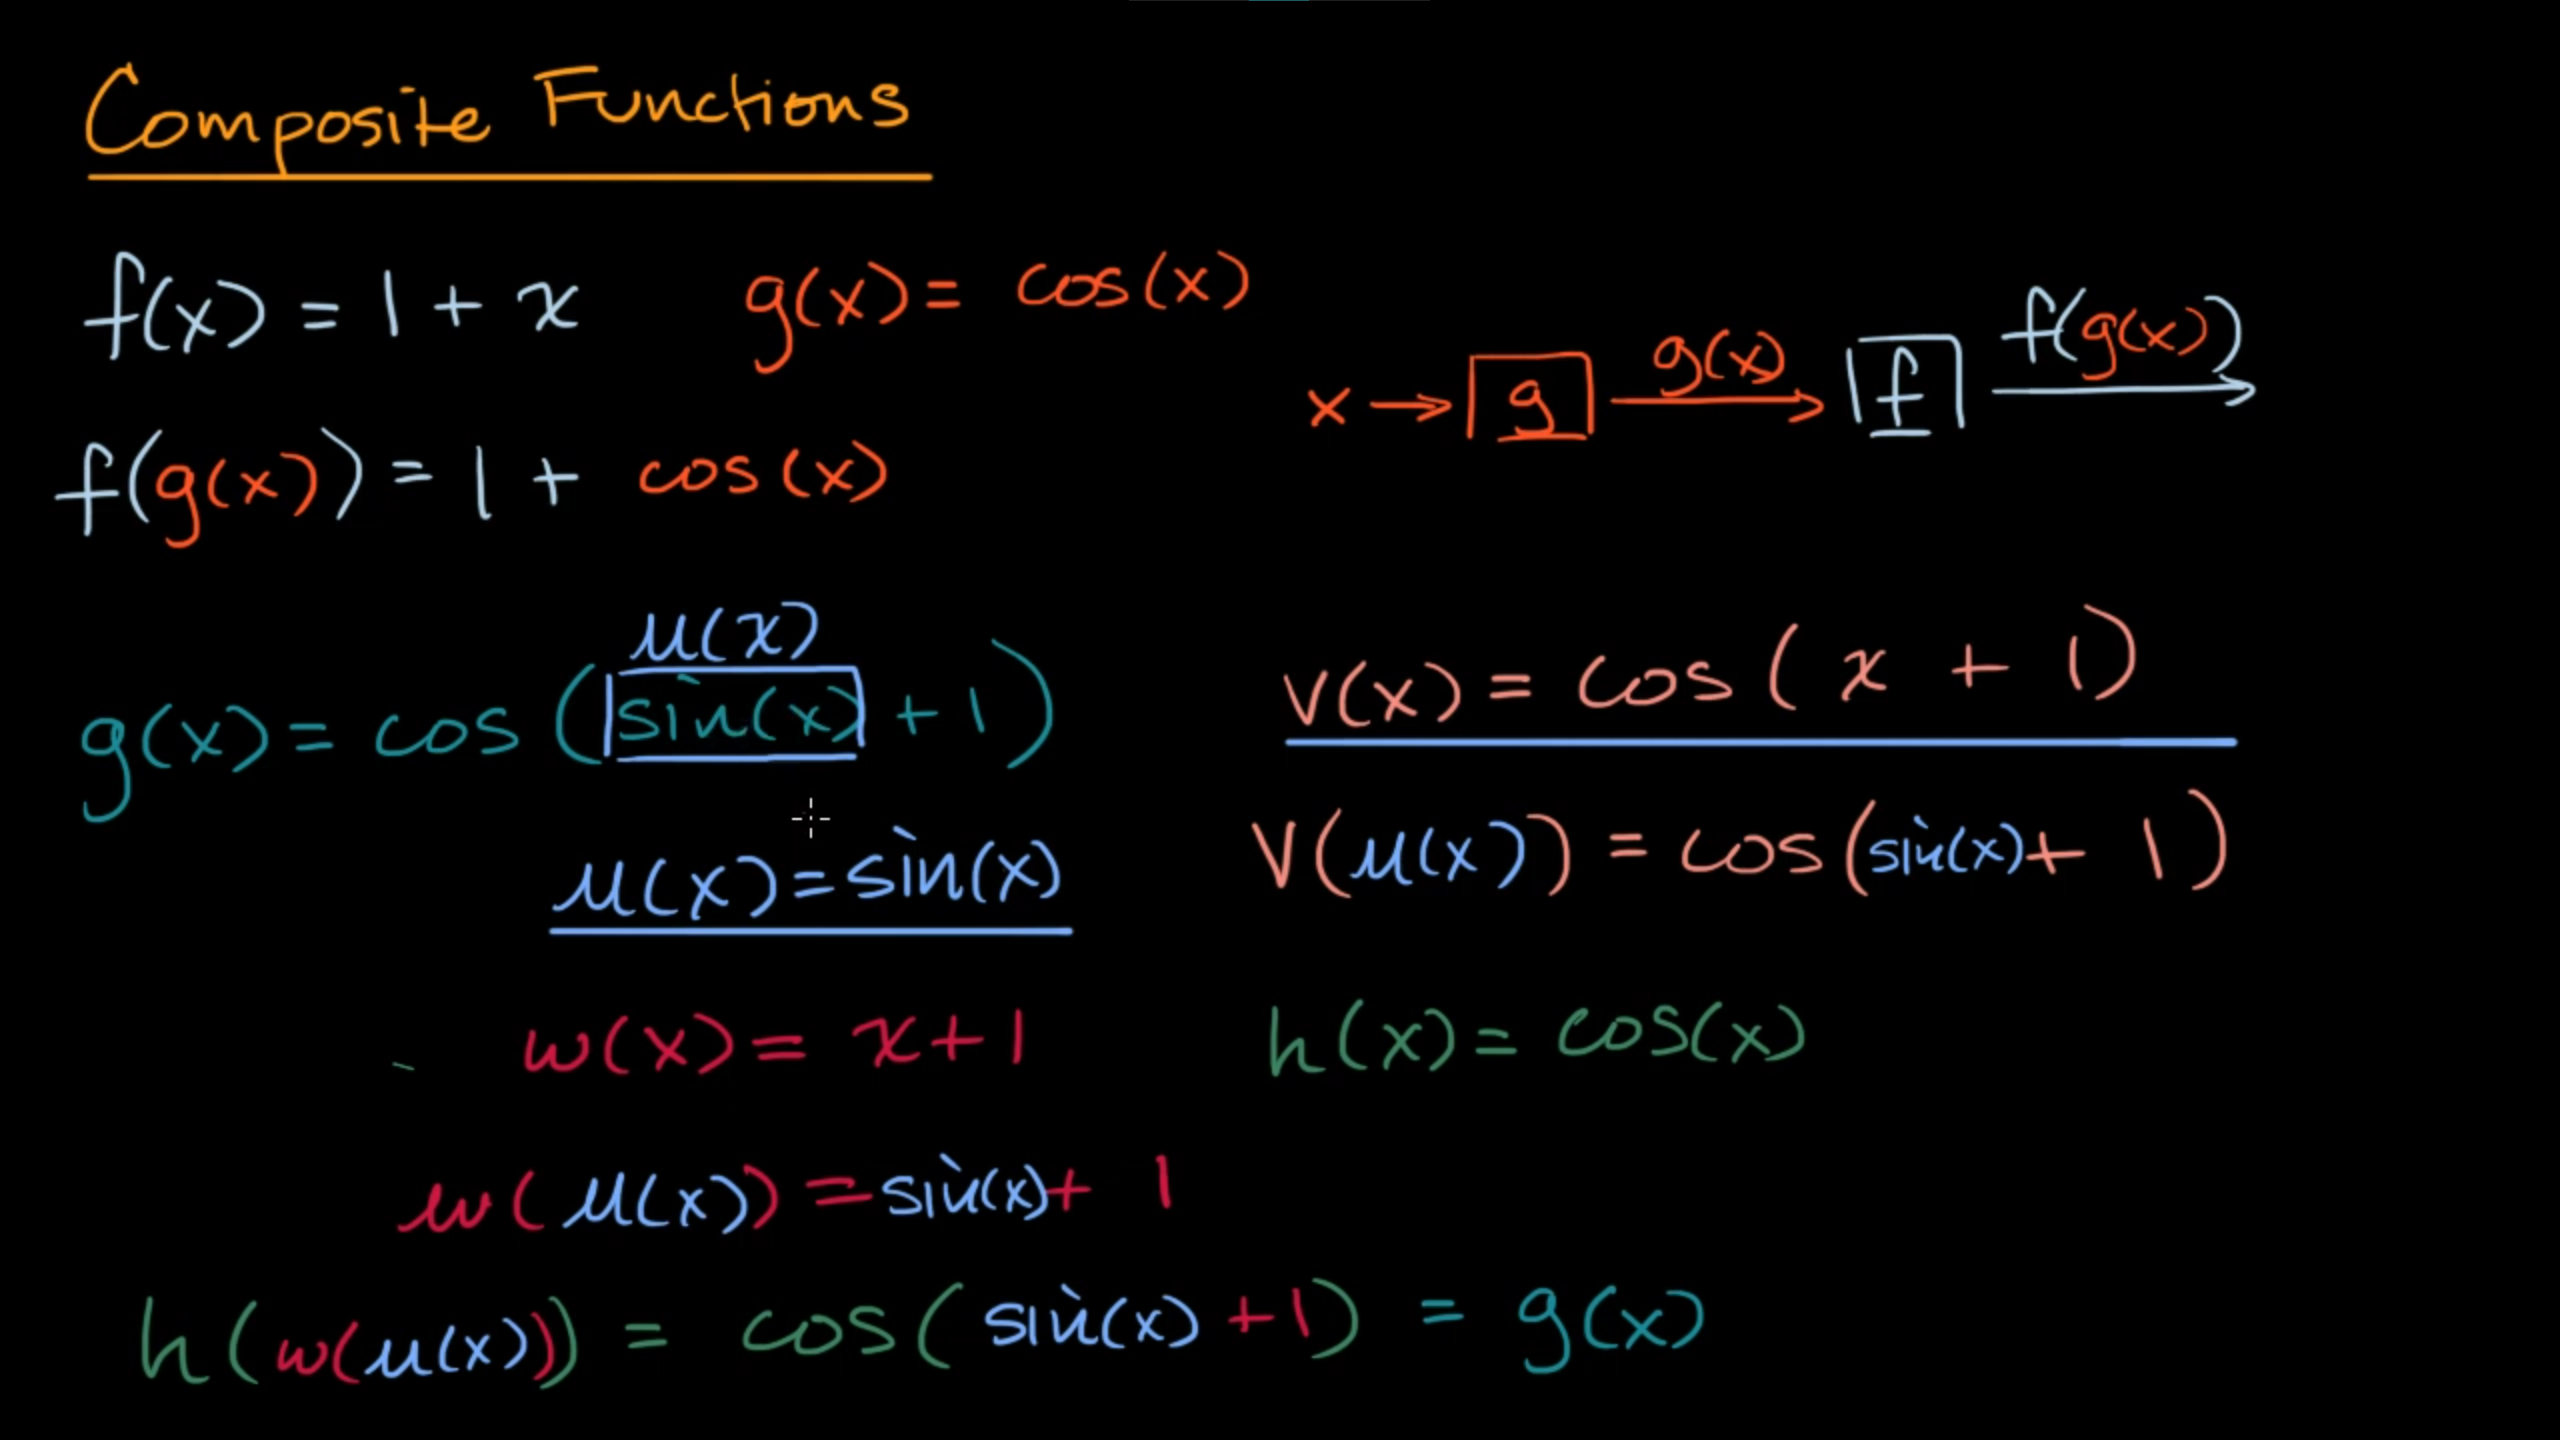 Composite Functions
f(x) = 1 + x
g(x) = cos(x)
x → g g(x) f f(g(x))
f(g(x)) = 1 + cos(x)
u(x)
g(x) = cos(sin(x) + 1)
v(x) = cos(x + 1)
u(x) = sin(x)
v(u(x)) = cos(sin(x) + 1)
w(x) = x + 1
h(x) = cos(x)
w(u(x)) = sin(x) + 1
h(w(u(x))) = cos(sin(x) + 1) = g(x)